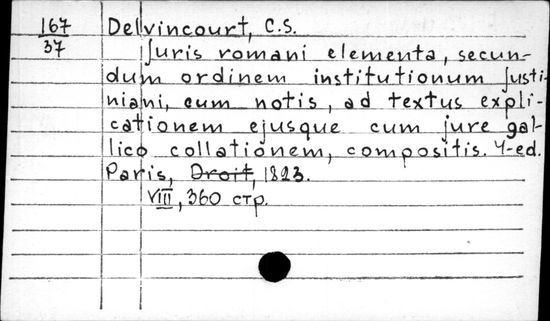 167
37
Delvincourt, C.S.
Juris romani elementa, secun-
dum ordinem institutionum Justi-
niani, cum notis, ad textus expli-
cationem ejusque cum jure gal-
lico collationem, compositis. 4-ed.
Paris, Droit, 1823.
VIII, 360 стр.